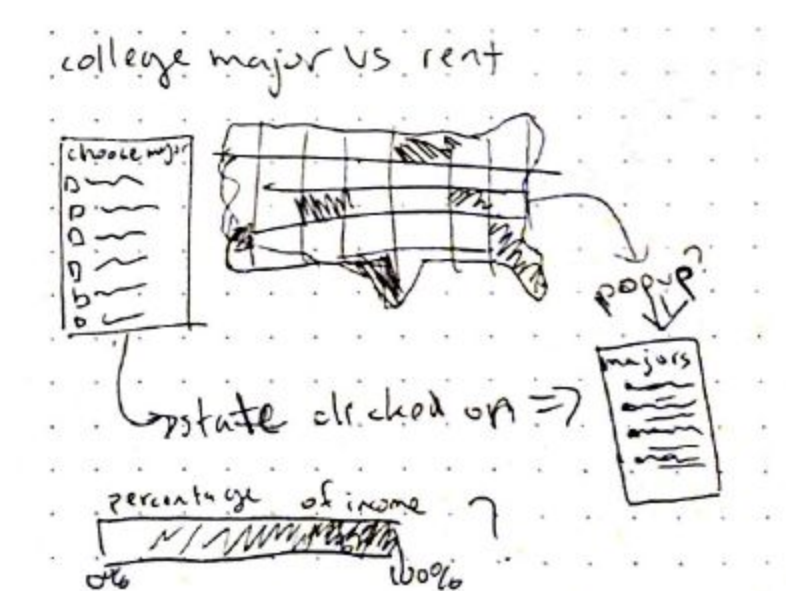 college major vs rent
choose major
popup?
majors
state clicked on =>
percentage of income ?
0%
100%